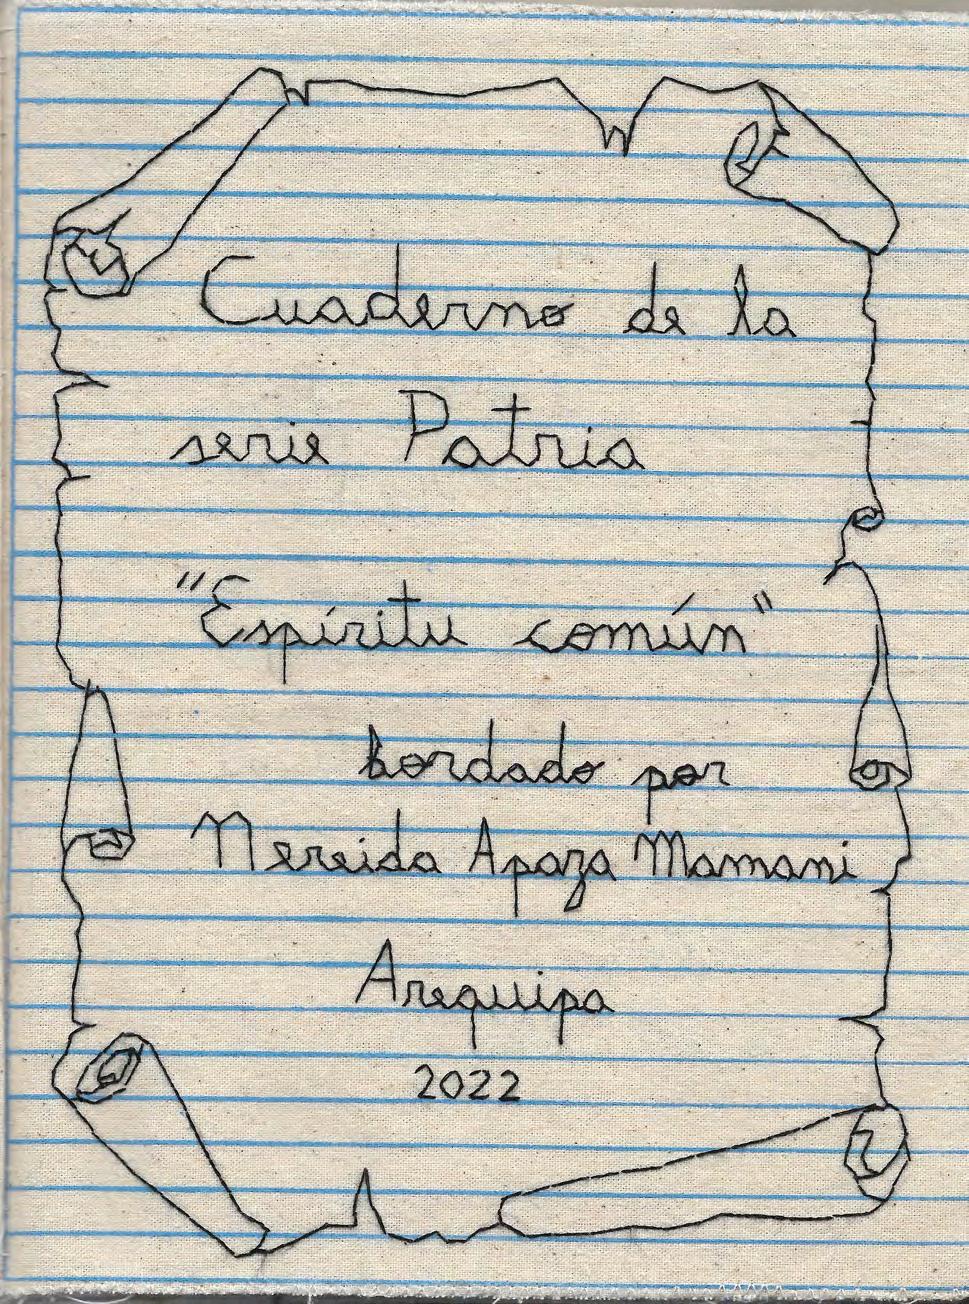 Cuaderno de la
serie Patria
"Espíritu común"
bordado por
Nereida Apaza Mamani
Arequipa
2022